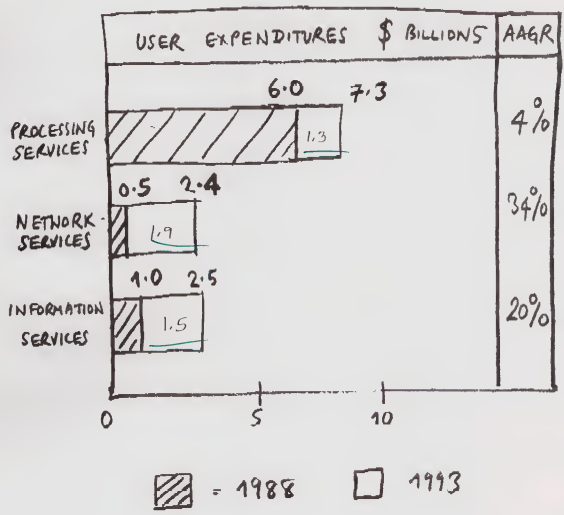 USER EXPENDITURES $ BILLIONS AAGR
6.0 7.3
PROCESSING
SERVICES
1.3
4%
0.5 2.4
NETWORK
SERVICES
1.9
34%
1.0 2.5
INFORMATION
SERVICES
1.5
20%
0 5 10
= 1988 1993